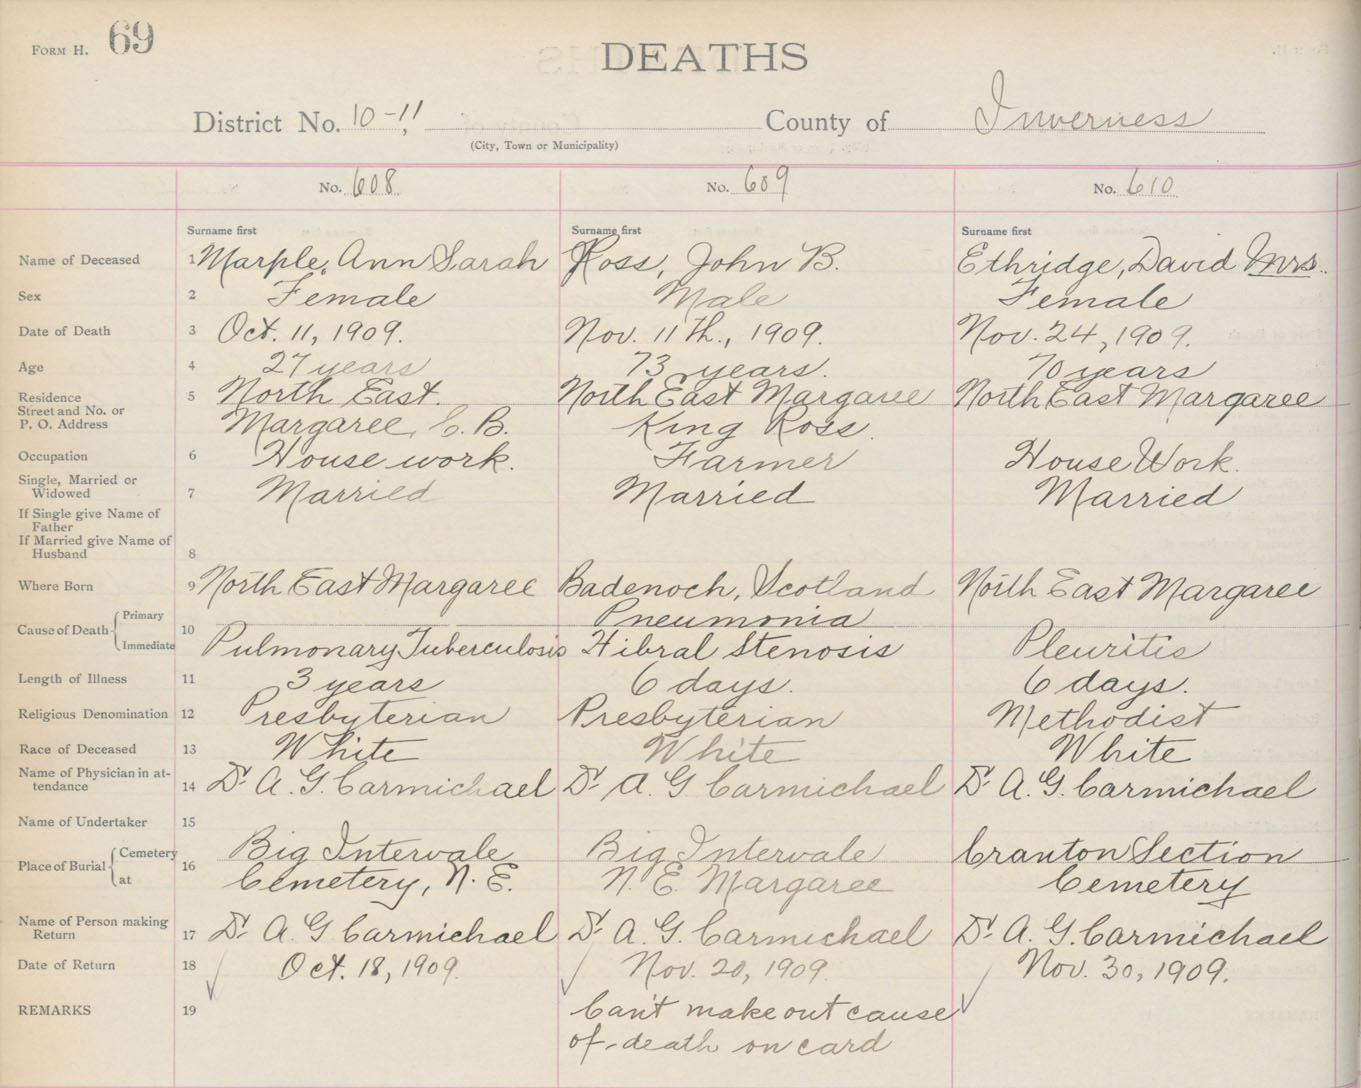 FORM H. 69
DEATHS
District No. 10-11 County of Inverness
(City, Town or Municipality)
No. 608 No. 609 No. 610
Surname first Surname first Surname first
Name of Deceased 1 Marple, Ann Sarah Ross, John B. Ethridge, David Mrs.
Sex 2 Female Male Female
Date of Death 3 Oct. 11, 1909. Nov. 11th., 1909. Nov. 24, 1909.
Age 4 27 years 73 years. 70 years
Residence 5 North East. North East Margaree North East Margaree
Street and No. or
P. O. Address Margaree, C. B. King Ross.
Occupation 6 House work. Farmer House Work.
Single, Married or
Widowed 7 Married Married Married
If Single give Name of
Father
If Married give Name of
Husband 8
Where Born 9 North East Margaree Badenoch, Scotland North East Margaree
Primary Pneumonia
Cause of Death 10
Immediate Pulmonary Tuberculosis Hibral Stenosis Pleuritis
Length of Illness 11 3 years 6 days. 6 days.
Religious Denomination 12 Presbyterian Presbyterian Methodist
Race of Deceased 13 White White White
Name of Physician in at-
tendance 14 Dr A. G. Carmichael Dr A. G Carmichael Dr A. G. Carmichael
Name of Undertaker 15
Cemetery Big Intervale Big Intervale Cranton Section
Place of Burial 16
at Cemetery, N. E. N. E. Margaree Cemetery
Name of Person making
Return 17 Dr A. G Carmichael Dr A. G. Carmichael Dr A. G. Carmichael
Date of Return 18 Oct. 18, 1909. Nov. 20, 1909. Nov. 30, 1909.
REMARKS 19 Can't make out cause
of death on card